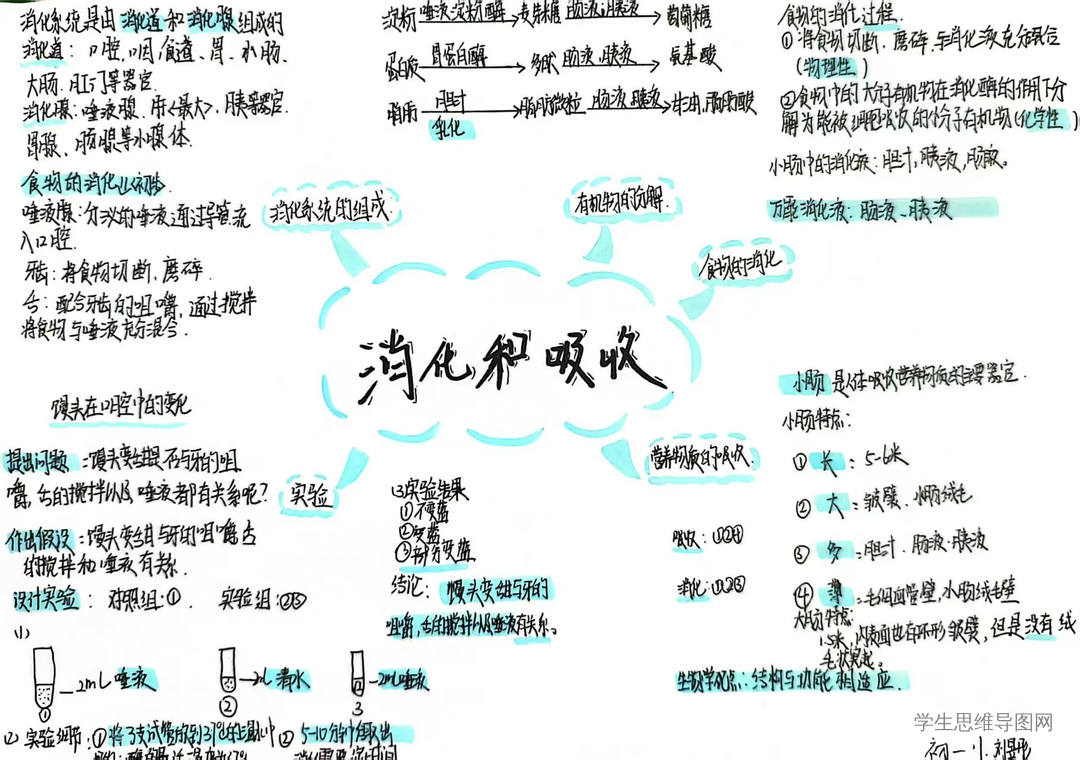 消化系统是由消化道和消化腺组成的
消化道：口腔、咽、食道、胃、小肠、
大肠、肛门等器官
消化腺：唾液腺、肝<最大>、胰等器官
胃腺、肠腺等小腺体.
食物的消化
唾液腺：分泌的唾液通过导管流
入口腔.
牙齿：将食物切断，磨碎.
舌：配合牙齿的咀嚼，通过搅拌
将食物与唾液充分混合.
淀粉 唾液淀粉酶 麦芽糖 肠液、胰液 葡萄糖
蛋白质 胃蛋白酶 多肽 肠液、胰液 氨基酸
脂肪 胆汁 脂肪微粒 肠液、胰液 甘油、脂肪酸
乳化
食物的消化过程.
①将食物切断、磨碎、与消化液充分混合
(物理性)
②食物中的大分子有机物在消化酶的作用下分
解为能被细胞吸收的小分子有机物(化学性)
小肠中的消化液：胆汁，胰液，肠液。
万能消化液：肠液、胰液
消化系统的组成
有机物的分解.
食物的消化
消化和吸收
营养物质的吸收.
实验
馒头在口腔中的变化
提出问题：馒头变甜是否与牙的咀
嚼，舌的搅拌以及唾液都有关系呢？
作出假设：馒头变甜与牙的咀嚼舌
的搅拌和唾液有关.
设计实验：对照组：① 实验组：②③
(1)
2mL唾液
2mL清水
2mL唾液
①
②
3
(2) 实验细节：①将3支试管放到37℃的温水中 ②5-10分钟后取出
(3)实验结果
①不变蓝
②变蓝
③部分变蓝
结论：馒头变甜与牙的
咀嚼，舌的搅拌以及唾液有关系。
吸收：①②④
消化：①②③
小肠是人体吸收营养物质的主要器官.
小肠特点：
①长：5-6米
②大：皱襞、小肠绒毛
③多：胆汁、肠液、胰液
④薄：毛细血管壁，小肠绒毛壁
大肠特点：
1.5米，内表面也有环形皱襞，但是没有绒
毛状突起。
生物学观点：结构与功能相适应.
学生思维导图网
初一